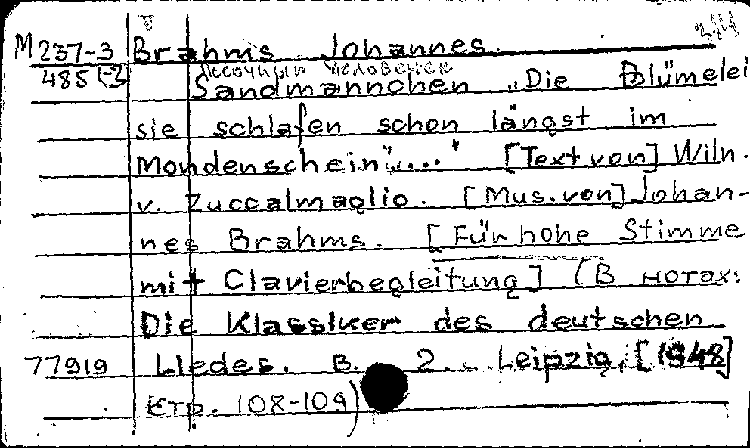 M 237-3 Brahms Johannes.
485 (-2) песочный человечек
Sandmännchen „Die Blümelei
sie schlafen schon längst im
Mondenschein"...." [Text von] Wilh.
v. Zuccalmaglio. [Mus. von] Johan-
nes Brahms. [Für hohe Stimme
mit Clavierbegleitung] (В нотах:
Die Klassiker des deutschen
77919 Liedes. B. 2. Leipzig, [1948]
стр. 108-109)